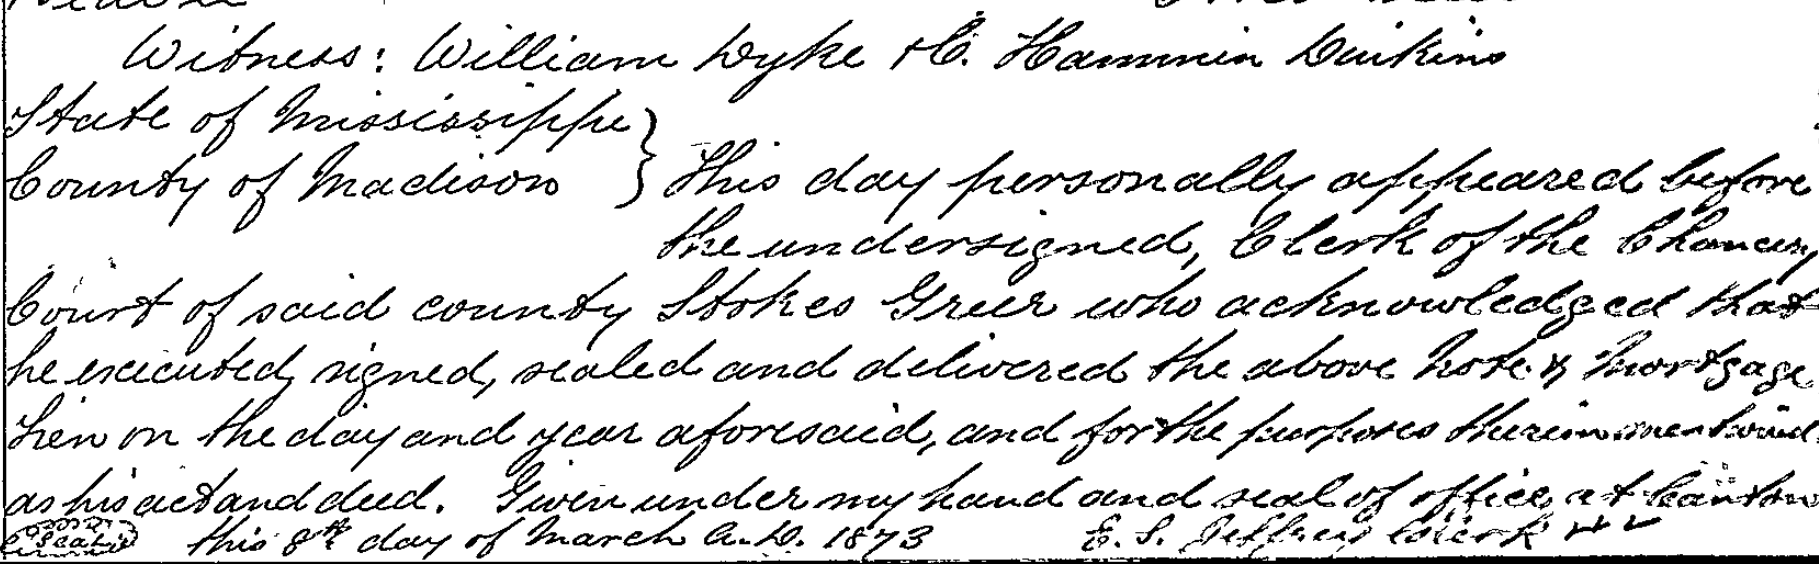 Witness: William Dyke & C. Hammin Duikins
State of Mississippi
County of Madison } This day personally appeared before
the undersigned, Clerk of the Chancery
Court of said county Stokes Greer who acknowledged that
he executed, signed, sealed and delivered the above Note & Mortgage
Lien on the day and year aforesaid, and for the purposes therein mentioned
as his act and deed. Given under my hand and seal of office, at Canton
Seal this 8th day of March A.D. 1873 E. S. Jeffrey Clerk